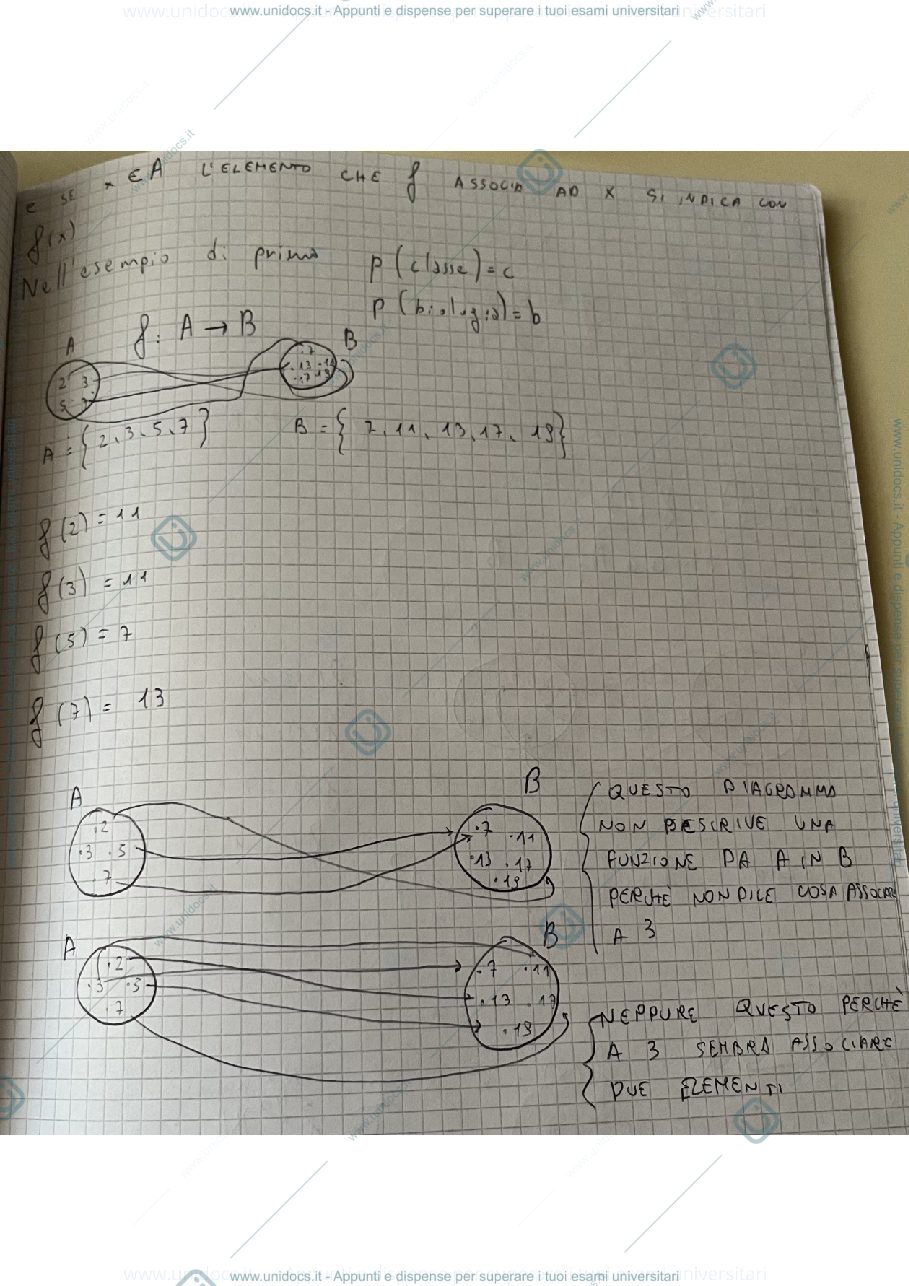 www.unidocs.it - Appunti e dispense per superare i tuoi esami universitari
E SE x ∈ A L'ELEMENTO CHE f ASSOCIA AD X SI INDICA CON
f(x)
Nell'esempio di prima p(classe)=c
p(biologia)=b
f: A → B
A B
2 3
5 7
.7
.13 .11
.17 .19
A = {2,3,5,7} B = {7,11,13,17,19}
f(2)=11
f(3)=11
f(5)=7
f(7)= 13
A B
.2
.3 .5
.7
.7 .11
.13 .17
.19
QUESTO DIAGRAMMA
NON DESCRIVE UNA
FUNZIONE DA A IN B
PERCHÈ NON DICE COSA ASSOCIARE
A 3
A B
.2
.3 .5
.7
.7 .11
.13 .17
.19
NEPPURE QUESTO PERCHÈ
A 3 SEMBRA ASSOCIARE
DUE ELEMENTI
www.unidocs.it - Appunti e dispense per superare i tuoi esami universitari